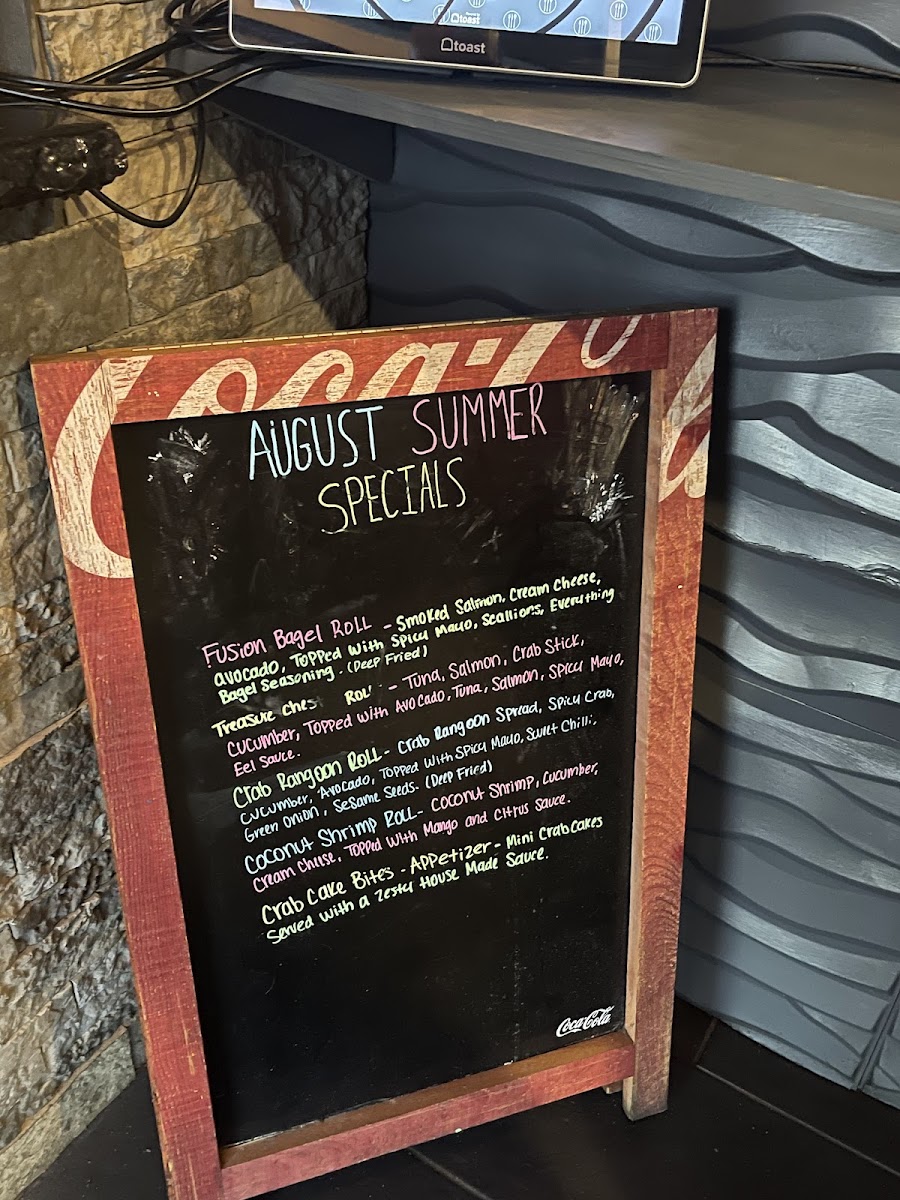 toast
toast
Coca-Co
AUGUST SUMMER
SPECIALS
Fusion Bagel Roll - Smoked Salmon, Cream Cheese,
avocado, Topped With Spicy Mayo, Scallions, Everything
Bagel Seasoning. (Deep Fried)
Treasure Ches Roll - Tuna, Salmon, Crab Stick,
Cucumber, Topped With Avocado, Tuna, Salmon, Spicy Mayo,
Eel Sauce.
Crab Rangoon Roll - Crab Rangoon Spread, Spicy Crab,
Cucumber, Avocado, Topped With Spicy Mayo, Sweet Chilli,
Green Onion, Sesame Seeds. (Deep Fried)
Coconut Shrimp Roll - Coconut Shrimp, Cucumber,
Cream Cheese, Topped With Mango and Citrus Sauce.
Crab Cake Bites - Appetizer - Mini Crabcakes
Served with a Zesty House Made Sauce.
Coca-Cola